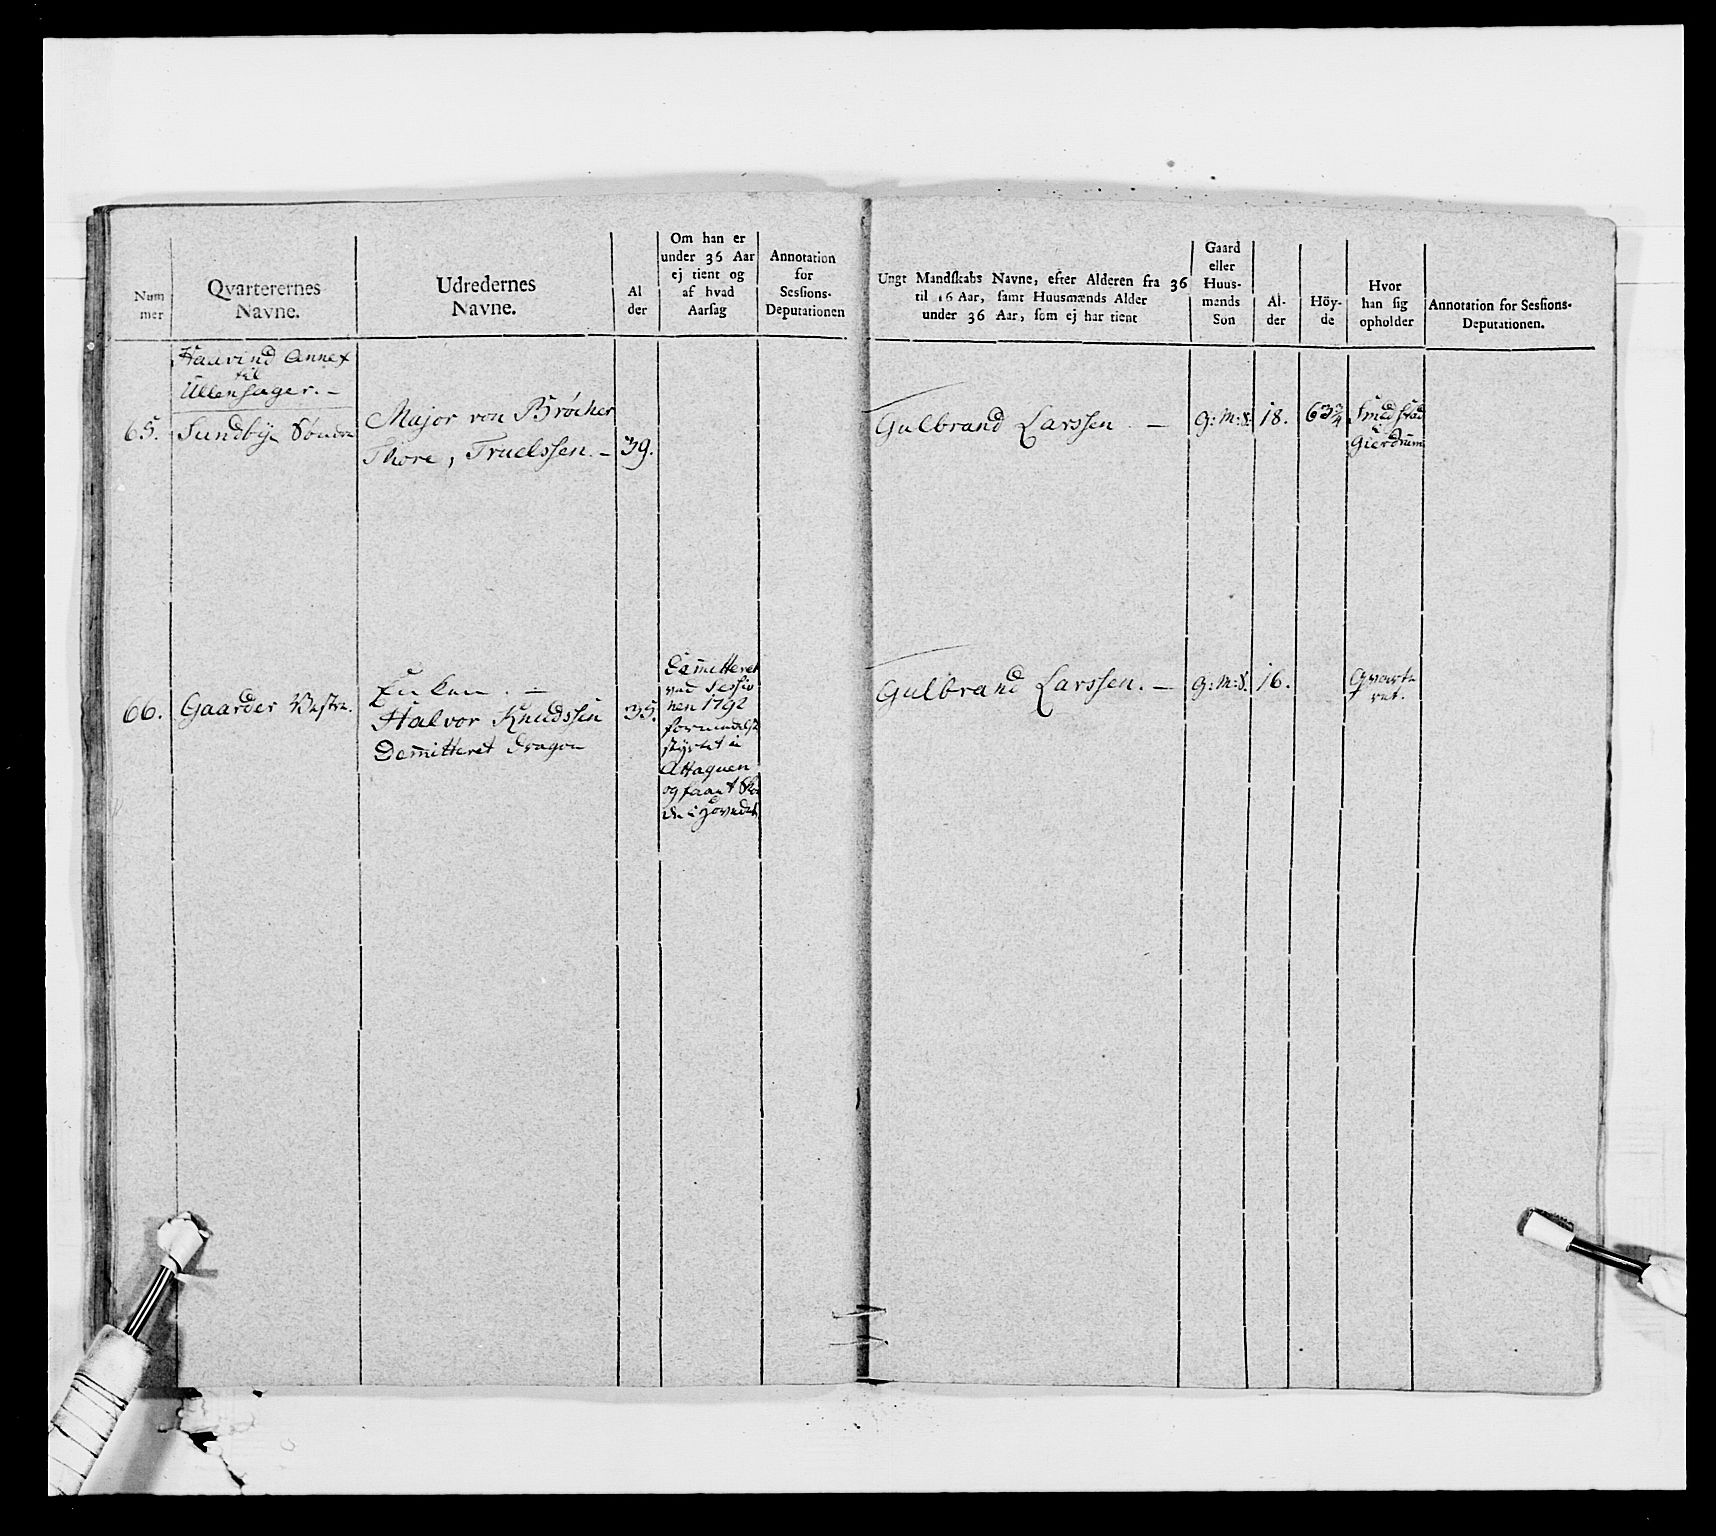 Num
mer
Qvarterernes
Navne.
Udredernes
Navne.
Al
der
Om han er
under 36 Aar
ej tient og
af hvad
Aarsag
Annotation
for
Sessions-
Deputationen
Ungt Mandskabs Navne, efter Alderen fra 36
til 16 Aar, samt Huusmænds Alder
under 36 Aar, som ej har tient
Gaard
eller
Huus-
mends
Son
Al-
der
Höy-
de
Hvor
han sig
opholder
Annotation for Sessions-
Deputationen.
Haavind Annex
til
Ullensager. –
65.
Sundbye Søndre
Major von Brøcker
Thore, Truelssen. –
39.
Gulbrand Larssen –
G:M:S:
18.
63¾
Smedstad
i
Gierdrum
66.
Gaarder Vestre.
Enken. –
Halvor Knudssen
Demitteret Dragon
35.
Demitteret
ved Sessio
nen 1792
formedelst
styrtet i
Attaquen
og faaet Ska
de i Hovedet
Gulbrand Larssen. –
G:M:S.
16.
Qvarte
ret.